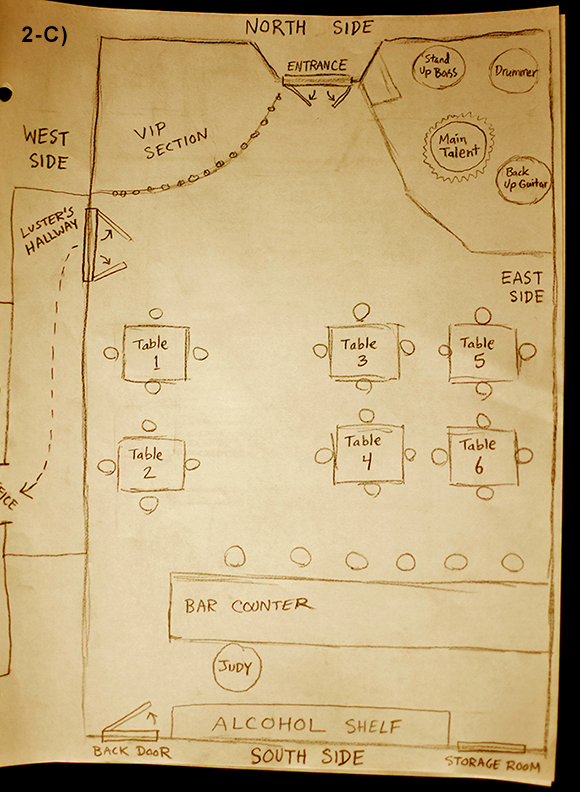 2-C)
NORTH SIDE
ENTRANCE
Stand
Up Bass
Drummer
VIP
SECTION
WEST
SIDE
Main
Talent
Back
Up Guitar
LUSTER'S
HALLWAY
EAST
SIDE
Table
1
Table
3
Table
5
Table
2
Table
4
Table
6
BAR COUNTER
JUDY
ALCOHOL SHELF
BACK DOOR
SOUTH SIDE
STORAGE ROOM